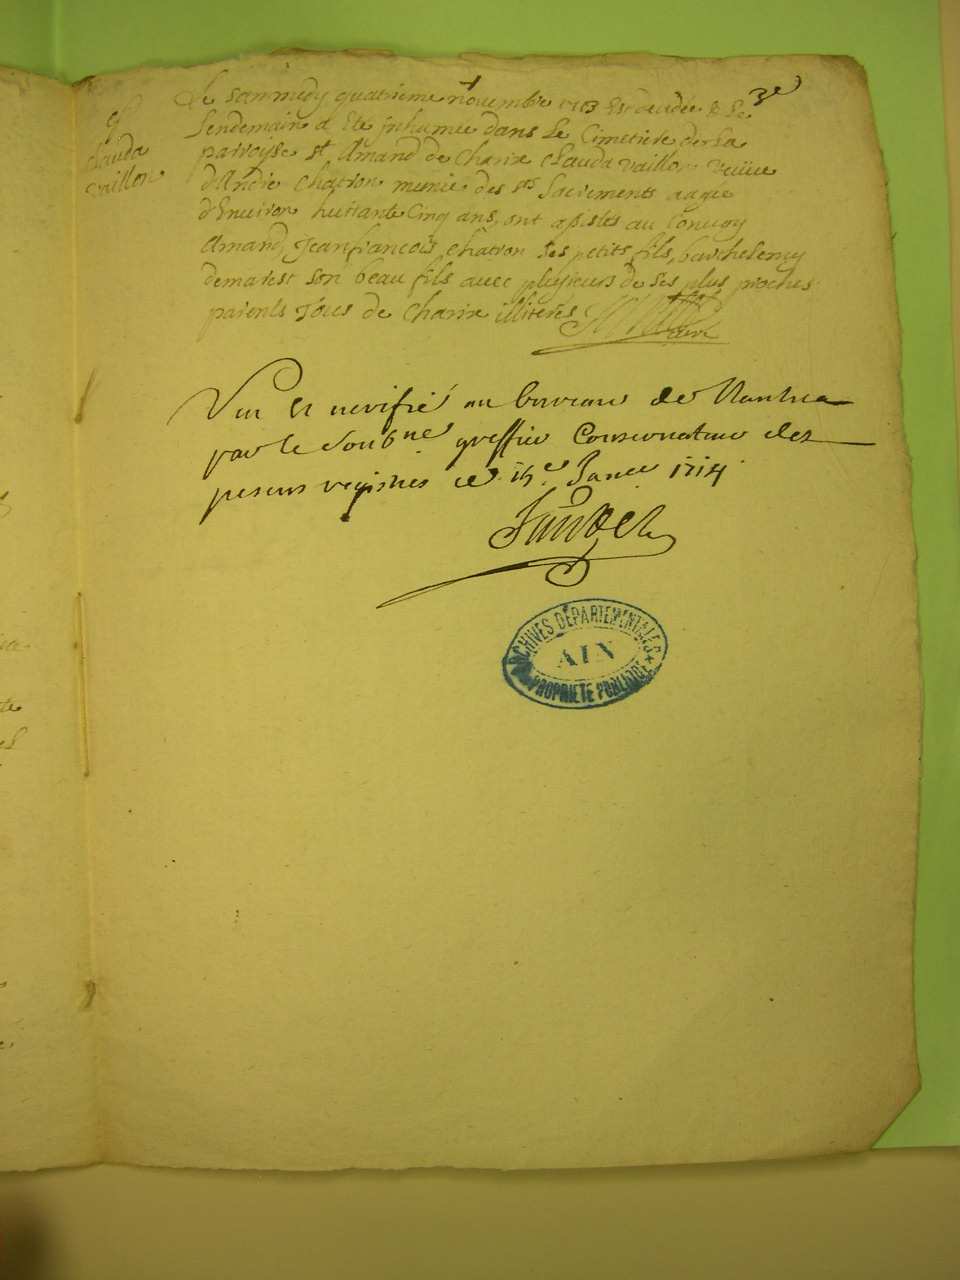 3e
Le sammedy quatrieme novembre 1713 est decedée & Le
Lendemain a Eté inhumée dans Le Cimetiere de La
parroisse st Amand de Charix Clauda vaillon veuve
d'André Chatron munie des sts Sacrements agée
d'Environ huittante Cinq ans, ont assistés au Convoy
Amand, Jeanfrancois Chatron ses petits fils, barthelemy
demarest son beau fils avec plusieurs de ses plus proches
parents Tous de Charix illiterés
curé
Clauda
vaillon
Veu et verifié au bureau de Nantua
par le soubné greffier Conservateur des
presens registres ce 15e Janer 1714
ARCHIVES DÉPARTEMENTALES
AIN
PROPRIÉTÉ PUBLIQUE